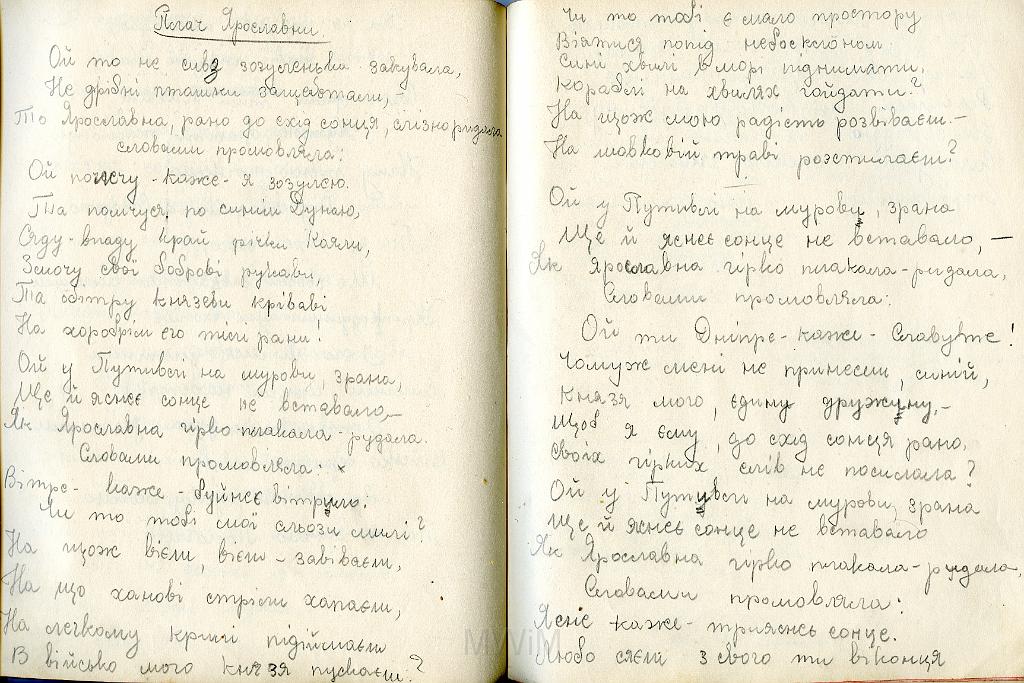 Плач Ярославни.
Ой то не сива зозуленьки закувала,
Не дрібні пташки защебтали,
То Ярославна, рано до схід сонця, слізно ридала
словами промовляла:
Ой полечу - каже - я зозулею.
Та помчуся по синім Дунаю,
Сяду-впаду край річки Каяли,
Змочу свої боброві рукави,
Та обітру князеви кріваві
На хоробрім єго тілі рани!
Ой у Путивлі на мурови, зрана,
Ще й яснеє сонце не вставало,—
Як Ярославна гірко плакала-рудала.
Словами промовляла:
Вітре- каже буйнеє вітрило!
Чи то тобі мої сльози милі?
На щож вієш, вієш - завіваєш,
На що ханові стріли хапаєш,
На легкому крилі підіймаєш
В військо мого князя пускаєш?
Чи то тобі є мало простору
Віятися попід небосклоном
Сині хвилі в морі піднимати,
Кораблі на хвилях гойдати?
На щож мою радість розвіваєш.—
На шовковій траві розстилаєш?
Ой у Путивлі на мурови, зрана
Ще й яснеє сонце не вставало,—
Як Ярославна гірко плакала-ридала,
Словами промовляла:
Ой ти Дніпре-каже-Славуте!
Чомуж мені не принесеш, синій,
Князя мого, єдину дружину,-
Щоб я єму, до схід сонця рано,
Своїх гірких слів не посилала?
Ой у Путивли на мурови, зрана
Ще й яснеє сонце не вставало
Як Ярославна гірко плакала-рудала,
Словами промовляла:
Яснє - каже- трияснеє сонце.
Любо сяєш з свого ти віконця
MYVIM